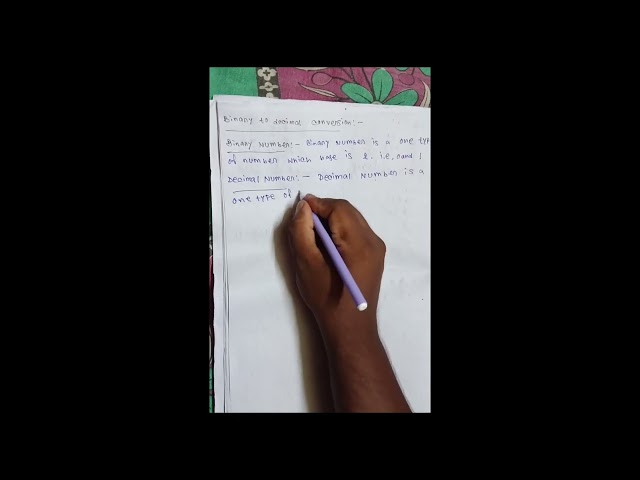 Binary to decimal conversion:-
Binary Number:- Binary Number is a one typ
of number which base is 2. i.e, 0 and 1
Decimal Number:- Decimal Number is a
one type of